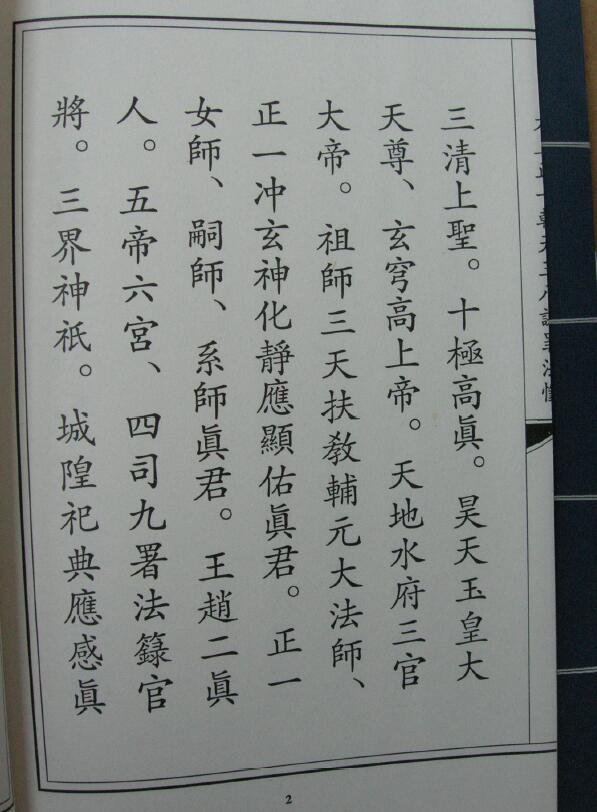 三清上聖。十極高眞。昊天玉皇大
天尊、玄穹高上帝。天地水府三官
大帝。祖師三天扶敎輔元大法師、
正一冲玄神化靜應顯佑眞君。正一
女師、嗣師、系師眞君。王趙二眞
人。五帝六宮、四司九署法籙官
將。三界神祇。城隍祀典應感眞
2